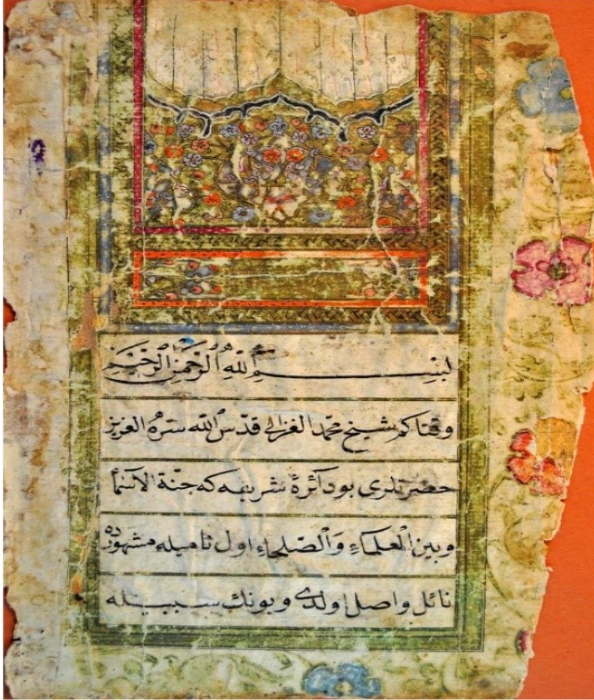 بِسْمِ اللهِ الرَّحْمٰنِ الرَّحِيْمِ
وقتاكم شيخ محمد الغزالي قدّس الله سرّه العزيز
حضرتلرى بو دآئرۀ شريفه كه جنّة الاسمآ
وبين الْعلمآءِ وَالصّلحآء اول ناميله مشهورده
نائل واصل اولدى وبونك سببيله